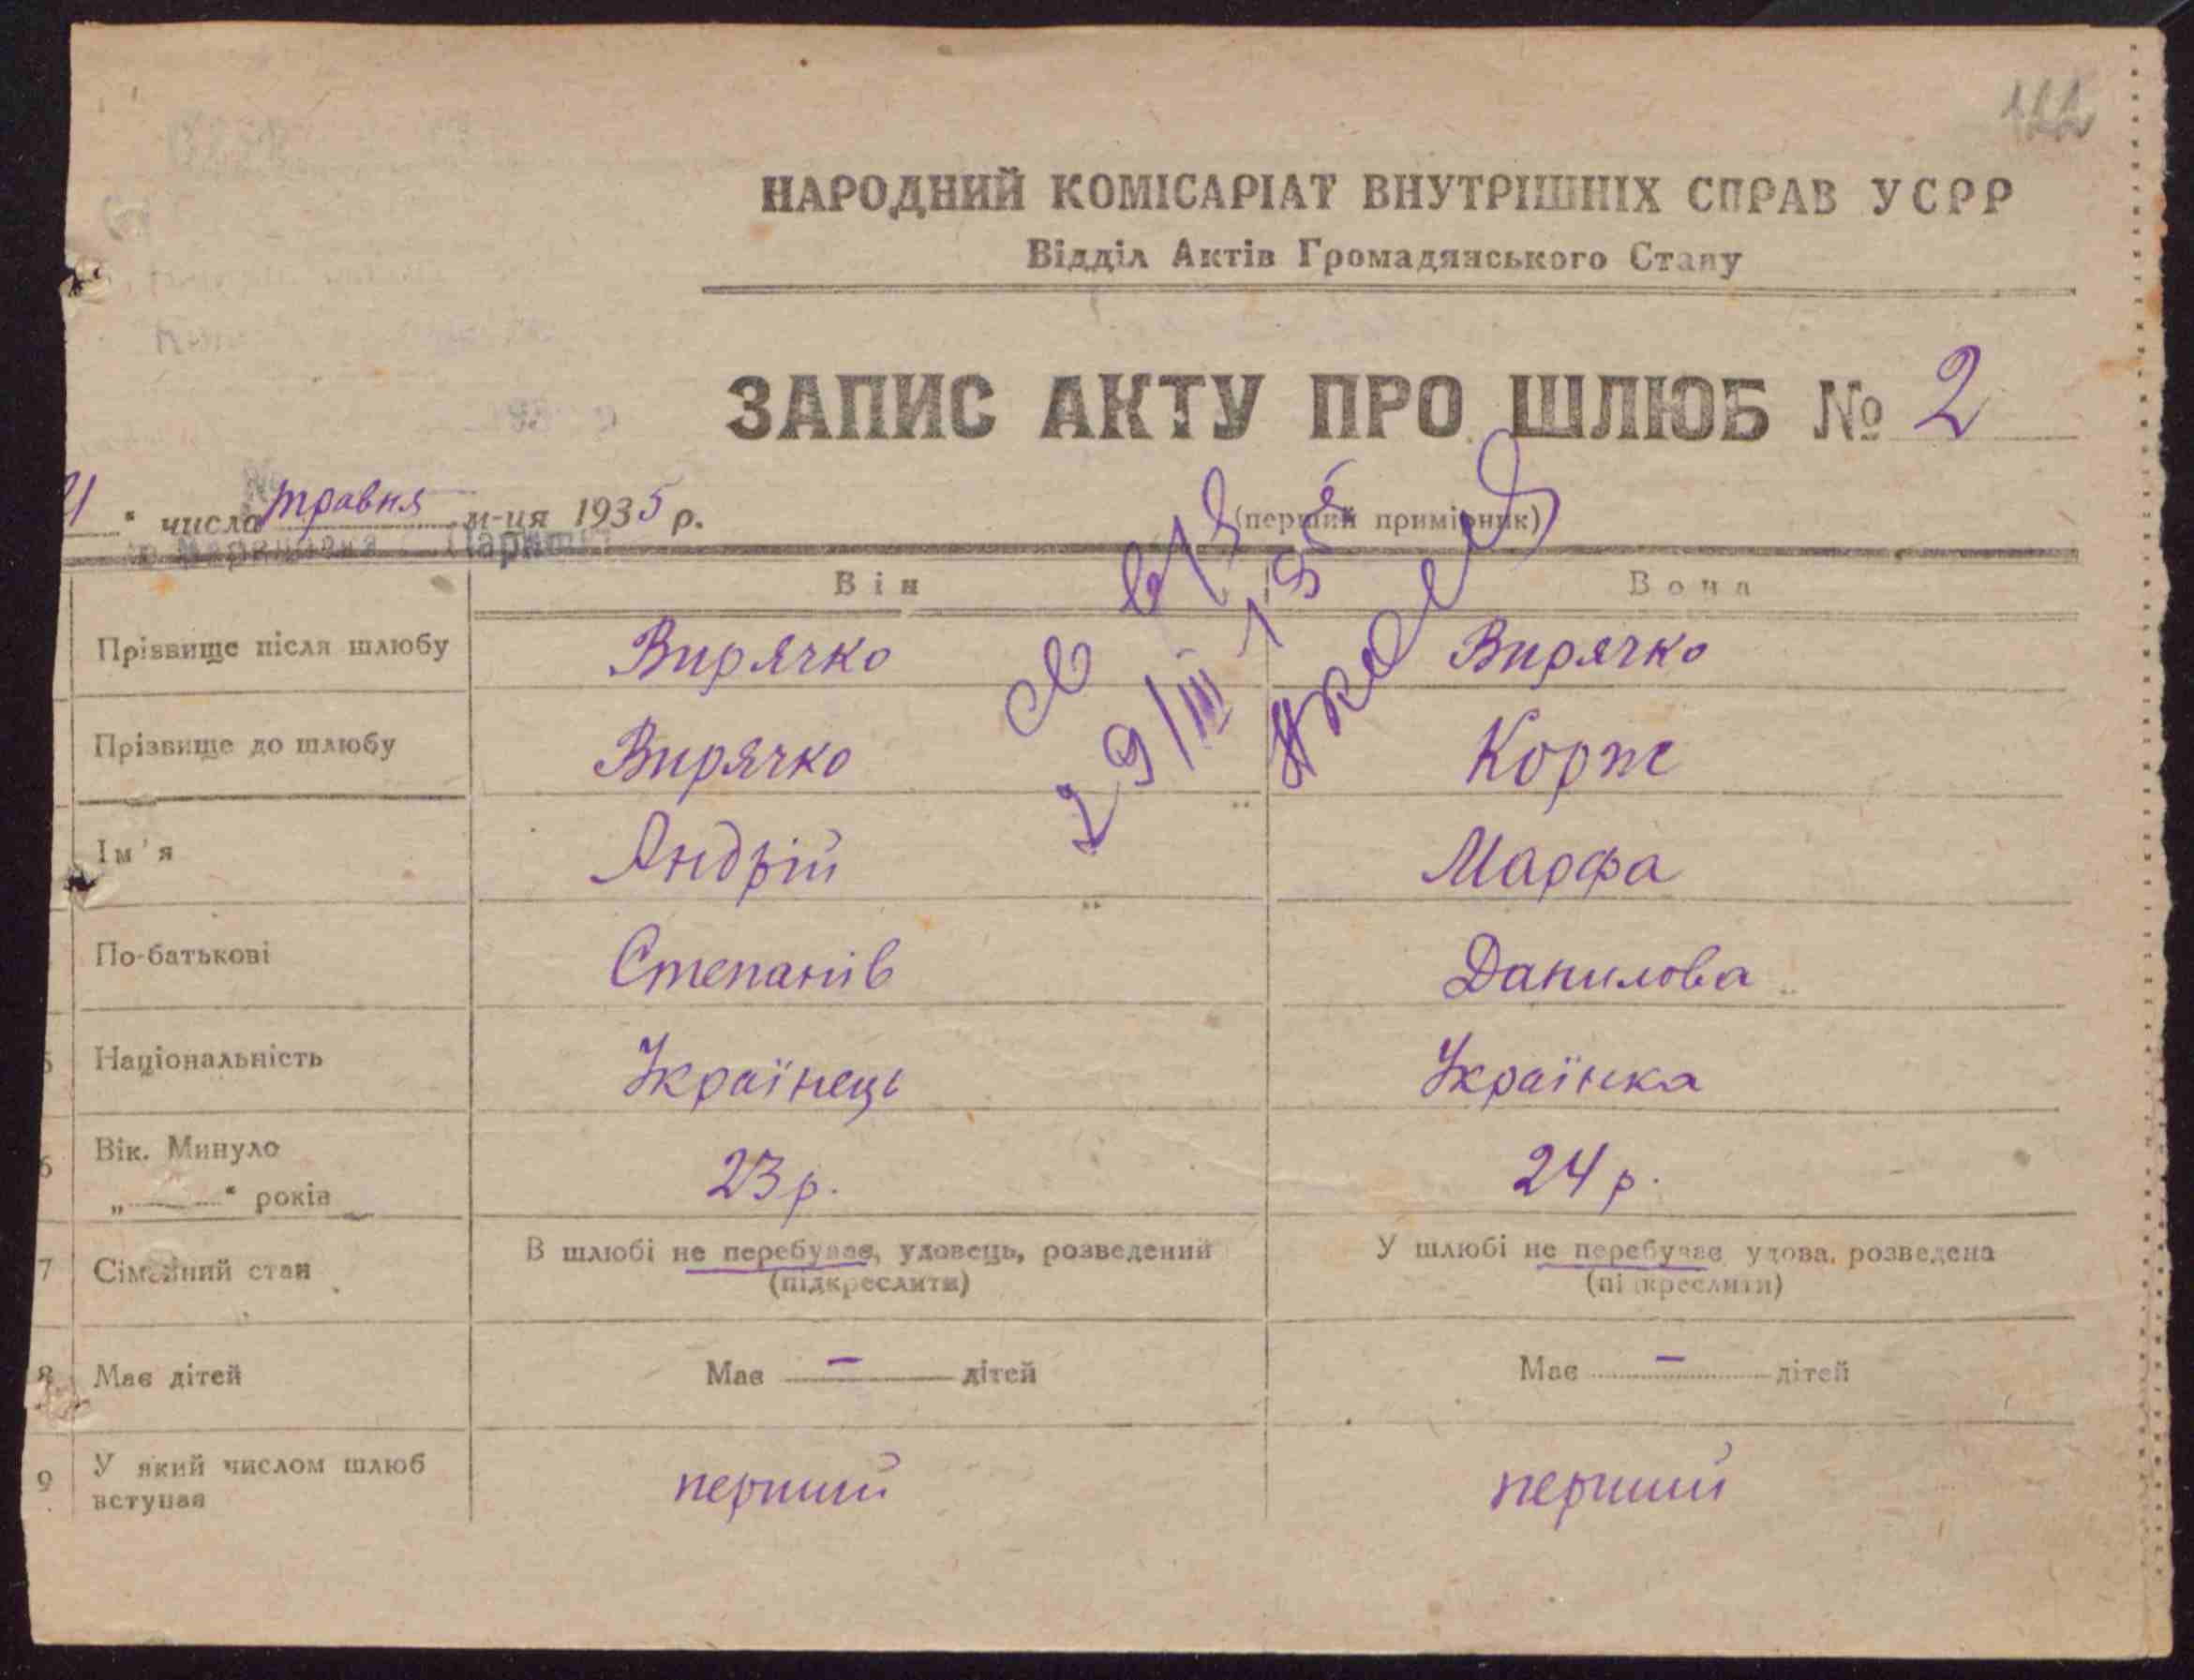 122
НАРОДНИЙ КОМІСАРІАТ ВНУТРІШНІХ СПРАВ УСРР
Відділ Актів Громадянського Стану
ЗАПИС АКТУ ПРО ШЛЮБ № 2
" числа травня м-ця 1935 р.
(перший примірник)
Він Вона
Прізвище після шлюбу Вирячко Вирячко
Прізвище до шлюбу Вирячко Корж
29/III
Ім'я Андрій Марфа
По-батькові Степанів Данилова
5 Національність Українець Українка
6 Вік. Минуло 23 р. 24 р.
„ " років
7 Сімейний стан В шлюбі не перебуває, удовець, розведений У шлюбі не перебуває удова, розведена
(підкреслити) (підкреслити)
8 Має дітей Має — дітей Має — дітей
9 У який числом шлюб перший перший
вступає